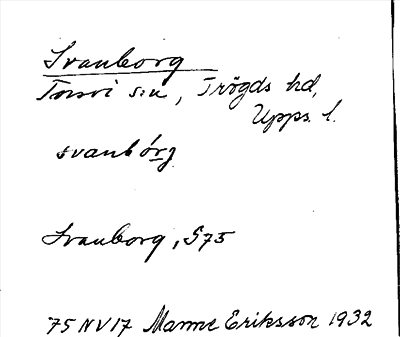 Svanborg
Torsvi s:n, Trögds hd,
Upps. l.
svanbórj
Svanborg, S75
75 NV 17 Manne Eriksson 1932